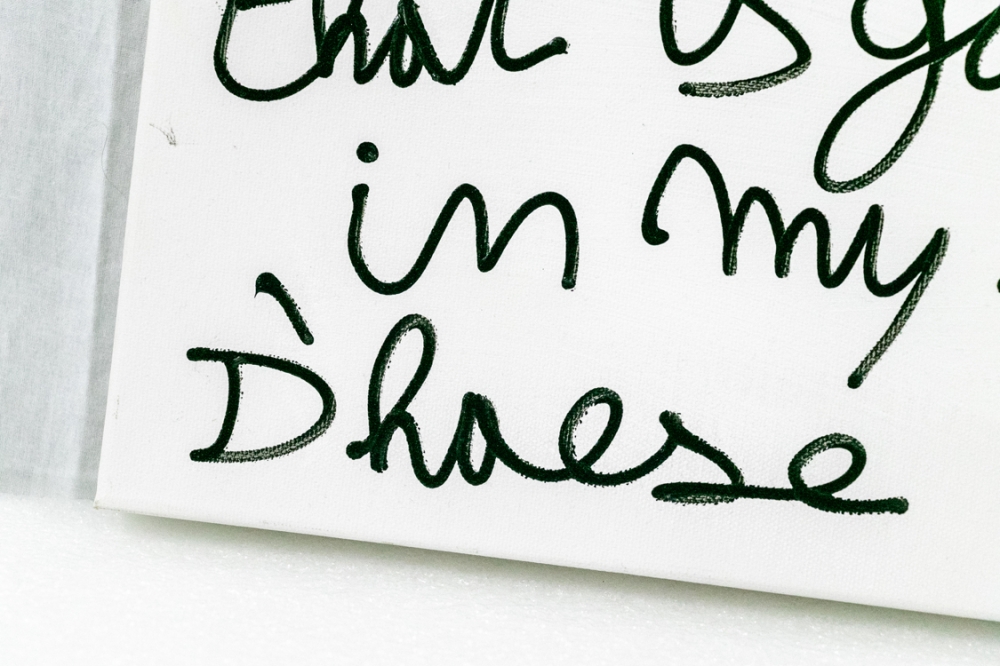 that is
in my
D'haese